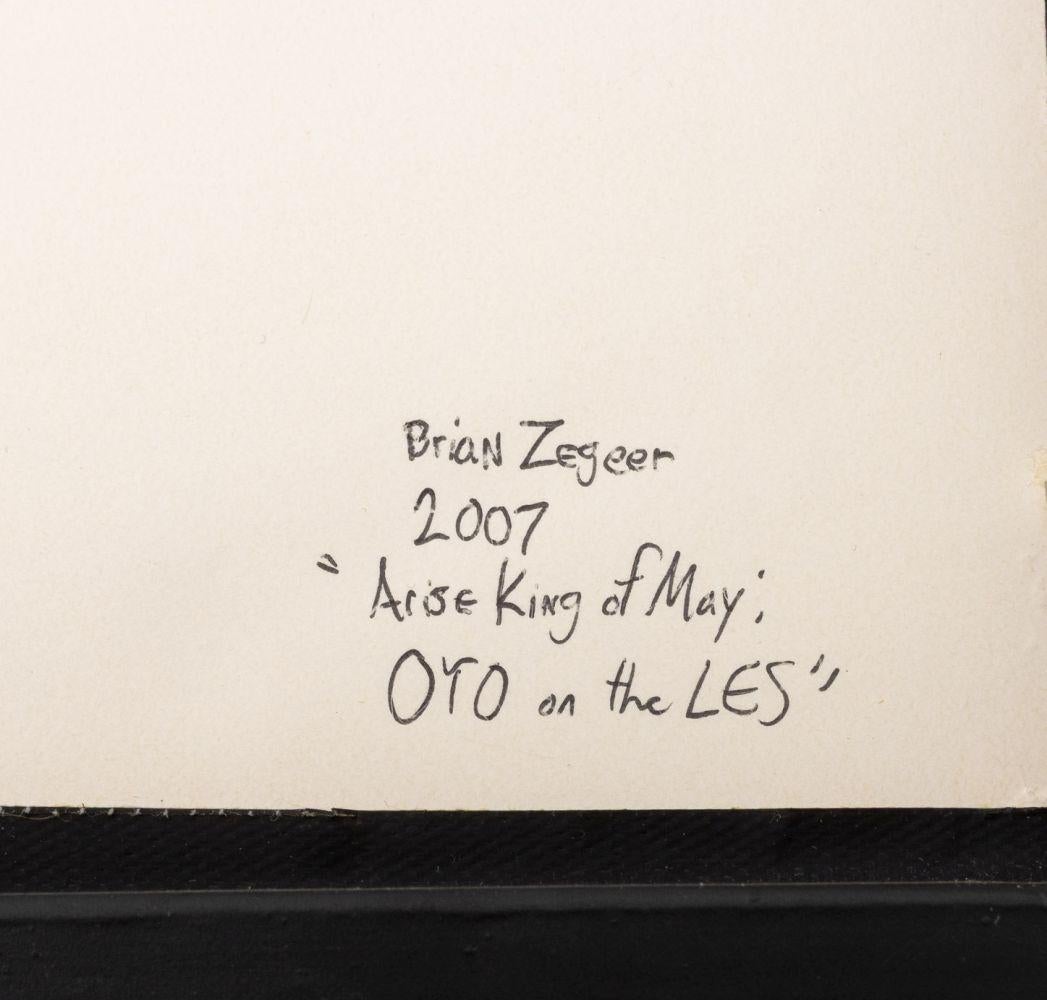 Brian Zegeer
2007
"Arise King of May;
OTO on the LES"